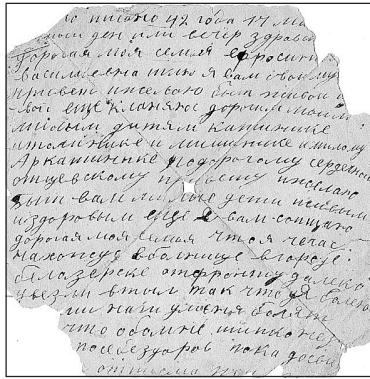 писано 42 года 17 ма
ден или вечер здравс
дорогая моя семья ефросин
василевна шлю я вам свой му
привет и желаю быт живой
еще кланяюс дорогим моим
милым дитям катшинике
и толинике и мишинике и милому
Аркашинке по дорогому сердечно
отцевскому привету и желаю
быт вам милые дети живым
и здоровым еще я вам сопщаю
дорогая моя семья что я чечас
нахожус в болнице в городе
белазерске от фронту далеко
увезли в тыл так что я болею
ноги у меня болят
что обо мне шипко не
бездоров пока досви